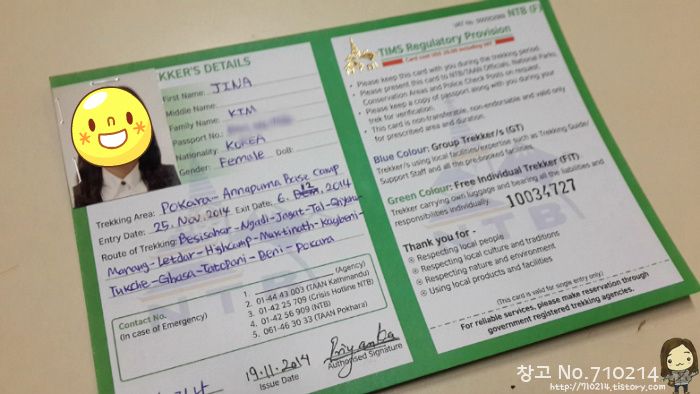 KKER'S DETAILS
First Name: JINA
Middle Name:
Family Name: KIM
Passport No.
Nationality: KOREA
Gender: Female DoB:
Trekking Area: Pokara-Annapurna Base Camp
Entry Date: 25. Nov. 2014 Exit Date: 6. 12. 2014
Route of Trekking: Besisahar-Ngadi-Jagat-Tal-
Manang-Letdar-Highcamp-Muktinath-Kagbeni-
Tukche-Ghasa-Tatopani-Beni-Pokara
Contact No.
(In case of Emergency)
1. (Agency)
2. 01-44 43 003 (TAAN Kathmandu)
3. 01-42 25 709 (Crisis Hotline NTB)
4. 01-42 56 909 (NTB)
5. 061-46 30 33 (TAAN Pokhara)
19.11.2014
Issue Date
Priyanka
Authorised Signature
NTB
NTB (F)
TIMS Regulatory Provision
• Please keep this card with you during the trekking period.
• Please present this card to NTB/TAAN Officials, National Parks,
Conservation Areas and Police Check Posts on request.
• Please keep a copy of passport along with you during your
trek for verification.
• This card is non-transferable, non-endorsable and valid only
for prescribed area and duration.
Blue Colour: Group Trekker/s (GT)
Trekker/s using local facilities/expertise such as Trekking Guide/
Support Staff and all the pre-booked facilities.
Green Colour: Free Individual Trekker (FIT)
Trekker carrying own luggage and bearing all the liabilities and
responsibilities individually.
10034727
NTB
Thank you for -
Respecting local people
Respecting local culture and traditions
Respecting nature and environment
Using local products and facilities
(This card is valid for single entry only)
For reliable services, please make reservation through
government registered trekking agencies.
창고 No.710214
http://710214.tistory.com